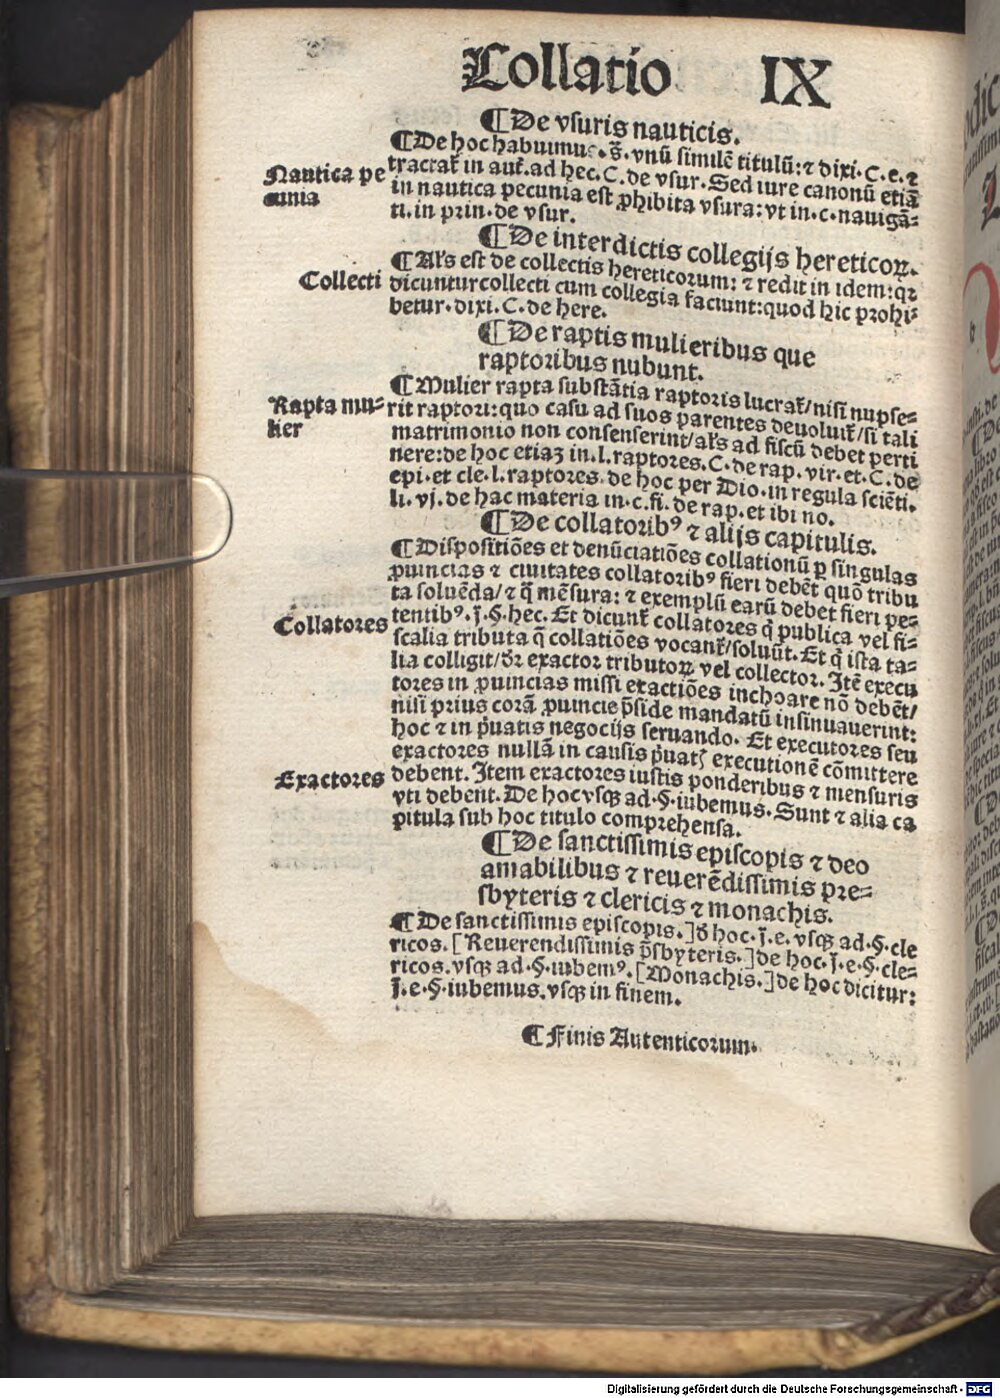 Collatio IX
¶ De vsuris nauticis.
¶ De hoc habuimus. s̄. vnū similē titulū: ⁊ dixi. C. e. ⁊
Nautica pe
cunia
tractať in auť. ad hec. C. de vsur. Sed iure canonū etiā
in nautica pecunia est ꝓhibita vsura: vt in. c. nauigā⸗
ti. in prin. de vsur.
¶ De interdictis collegijs hereticoꝝ.
¶ Al's est de collectis hereticorum: ⁊ redit in idem: qꝛ
Collecti
dicuntur collecti cum collegia faciunt: quod hic prohi⸗
betur. dixi. C. de here.
¶ De raptis mulieribus que
raptoribus nubunt.
¶ Mulier rapta substātia raptoris lucrať/ nisi nupse⸗
Rapta mu⸗
lier
rit raptori: quo casu ad suos parentes deuoluiť/ si tali
matrimonio non consenserint/ al's ad fiscū debet perti
nere: de hoc etiaꝫ in. l. raptores. C. de rap. vir. et. C. de
epi. et cle. l. raptores. de hoc per Dio. in regula sciēti.
li. vj. de hac materia in. c. fi. de rap. et ibi no.
¶ De collatoribꝰ ⁊ alijs capitulis.
¶ Dispositiōes et denūciatiōes collationū ꝑ singulas
ꝓuincias ⁊ ciuitates collatoribꝰ fieri debēt quō tribu
ta soluēda/ ⁊ q̄ mēsura: ⁊ exemplū earū debet fieri pe⸗
Collatores
tentibꝰ. j̄. §. hec. Et dicunť collatores q̇ publica vel fi⸗
scalia tributa q̄ collatiōes vocanť/ soluūt. Et q̇ ista ta⸗
lia colligit/ dr̄ exactor tributoꝝ vel collector. Itē execu
tores in ꝓuincias missi exactiōes inchoare nō debēt/
nisi prius corā ꝓuincie p̄side mandatū insinuauerint:
hoc ⁊ in p̄uatis negocijs seruando. Et executores seu
exactores nullā in causis p̄uatꝭ executionē cōmittere
Exactores
debent. Item exactores iustis ponderibus ⁊ mensuris
vti debent. De hoc vsqꝫ ad. §. iubemus. Sunt ⁊ alia ca
pitula sub hoc titulo comprehensa.
¶ De sanctissimis episcopis ⁊ deo
amabilibus ⁊ reuerēdissimis pre⸗
sbyteris ⁊ clericis ⁊ monachis.
¶ De sanctissimis episcopis.] d̄ hoc. j̄. e. vsqꝫ ad. §. cle
ricos. [Reuerendissimis p̄sbyteris.] de hoc. j̄. e. §. cle⸗
ricos. vsqꝫ ad. §. iubemꝰ. [Monachis.] de hoc dicitur:
j̄. e. §. iubemus. vsqꝫ in finem.
¶ Finis Autenticorum.
Digitalisierung gefördert durch die Deutsche Forschungsgemeinschaft - DFG